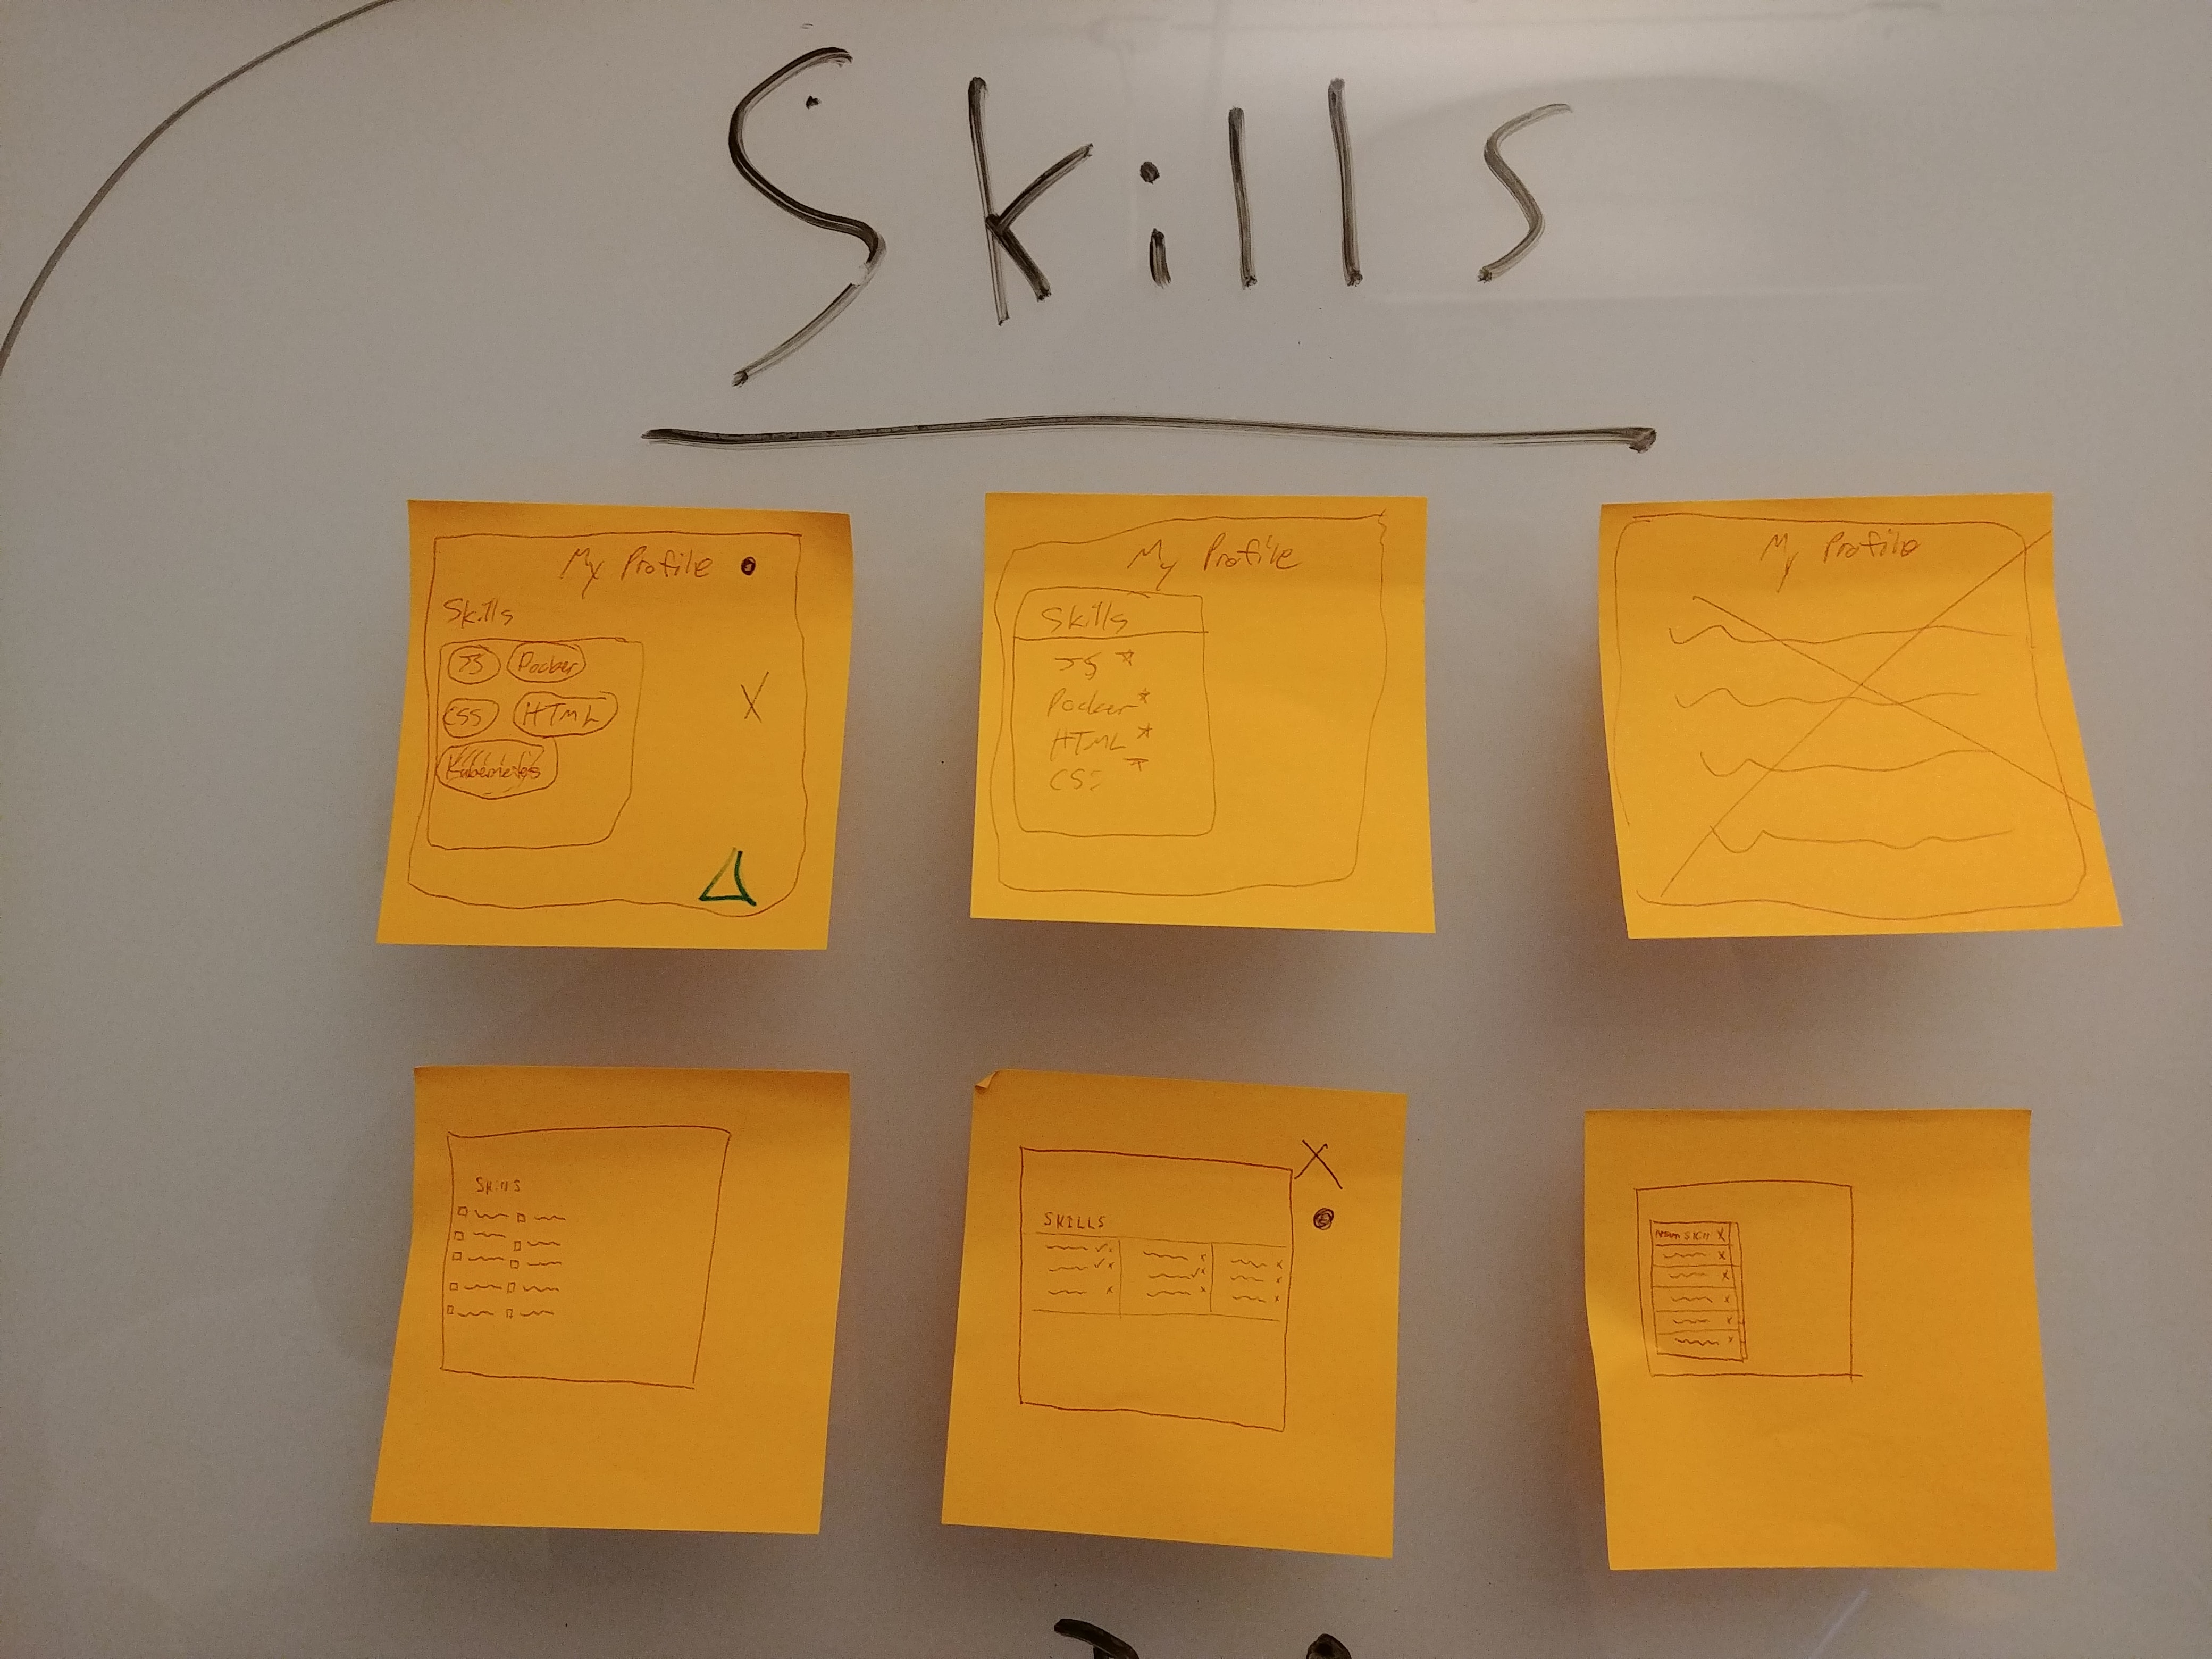 Skills
My Profile
Skills
JS Docker
CSS HTML
Kubernetes
X
My Profile
Skills
JS *
Docker *
HTML *
CSS *
My Profile
Skills
X
SKILLS
Skill X
X
X
X
X
X